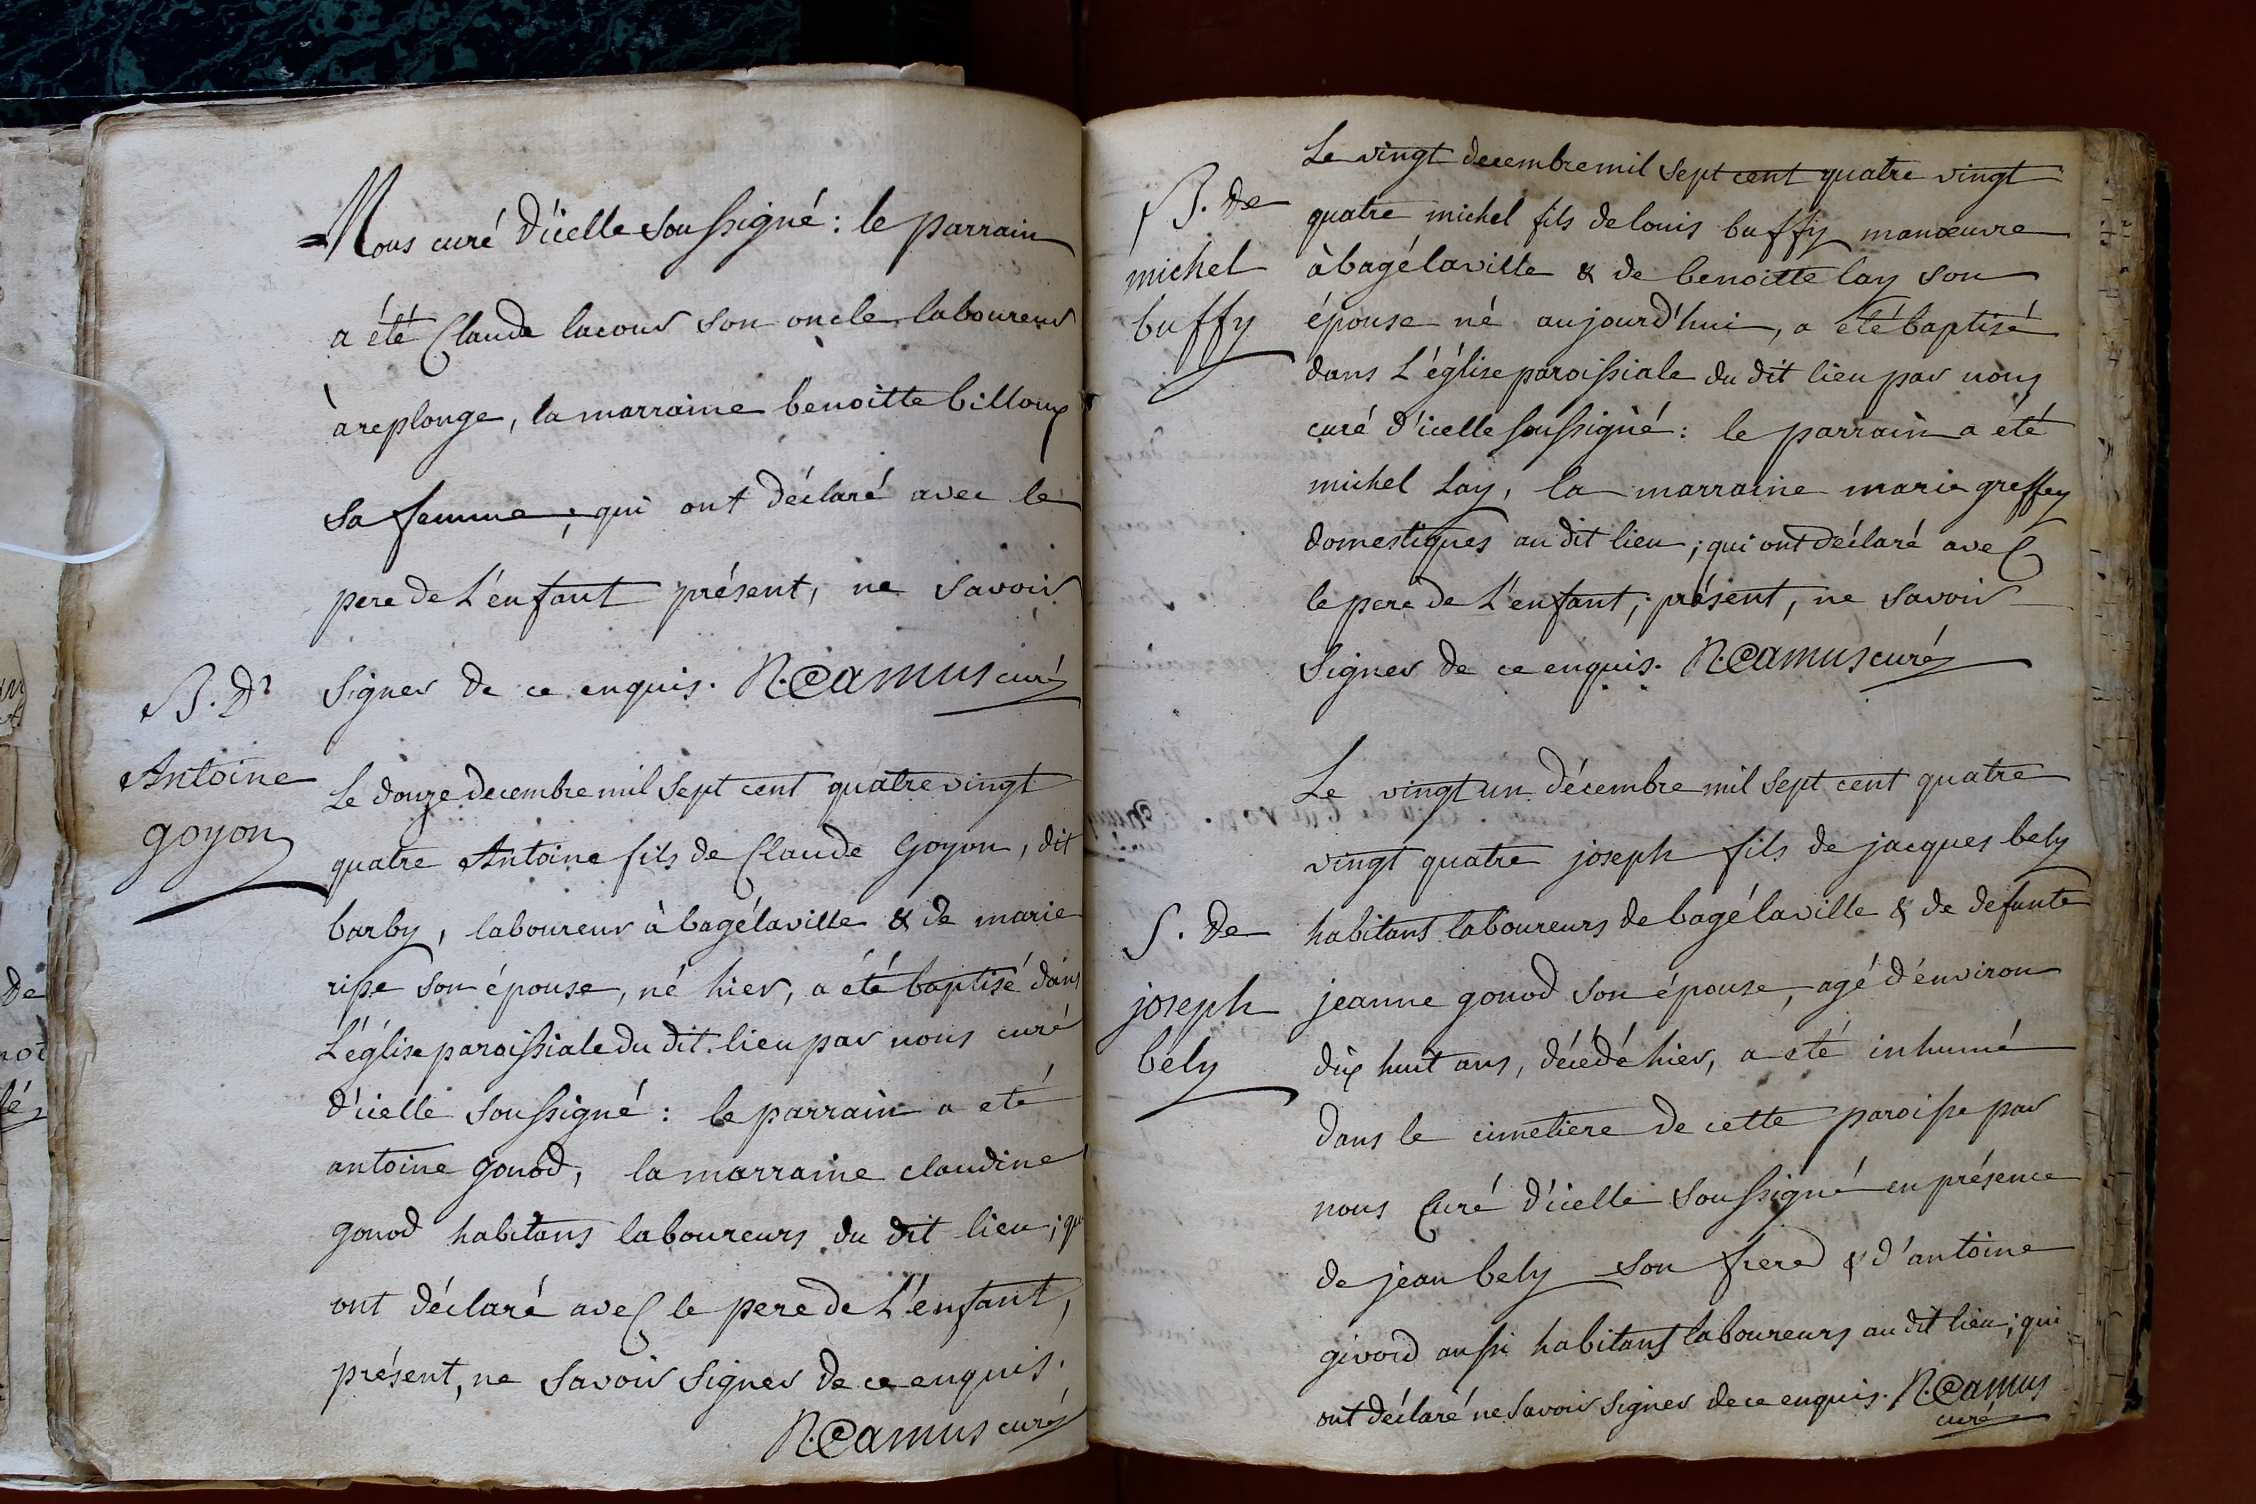 Nous curé d'icelle soussigné : le parrain
a été Claude lacour son oncle laboureur
à replonge, la marraine benoitte billoux
sa femme ; qui ont déclaré avec le
pere de L'enfant présent, ne savoir
signer de ce enquis. N. Camus curé
B. de
Antoine
goyon
Le douze decembre mil sept cent quatre vingt
quatre Antoine fils de Claude Goyon, dit
barby, laboureur à bagélaville & de marie
risse son épouse, né hier, a été baptisé dans
L'église paroissiale du dit lieu par nous curé
d'icelle soussigné : le parrain a eté
antoine gonod, la marraine claudine
gonod habitans laboureurs du dit lieu ; qui
ont déclaré avec le pere de L'enfant,
présent, ne savoir signer de ce enquis.
N. Camus curé
B. de
michel
buffy
Le vingt decembre mil sept cent quatre vingt
quatre michel fils de louis buffy manœuvre
à bagélaville & de benoitte lay son
épouse né aujourd'hui, a eté baptisé
dans L'église paroissiale du dit lieu par nous
curé d'icelle soussigné : le parrain a été
michel Lay, la marraine marie greffey
domestiques au dit lieu ; qui ont déclaré avec
le pere de L'enfant, présent, ne savoir
signer de ce enquis. N. Camus curé
S. de
joseph
bely
Le vingt un décembre mil sept cent quatre
vingt quatre joseph fils de jacques bely
habitant laboureurs de bagélaville & de defunte
jeanne gonod son épouse, agé d'environ
dix huit ans, décédé hier, a eté inhumé
dans le cimetiere de cette paroisse par
nous Curé d'icelle soussigné en présence
de jean bely son frere & d'antoine
givord aussi habitans laboureurs au dit lieu ; qui
ont déclaré ne savoir signer de ce enquis. N. Camus
curé